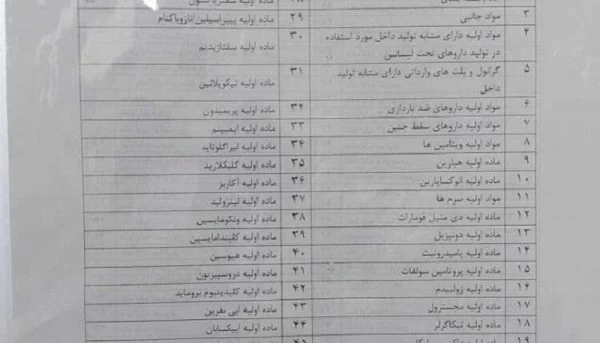 ۳ مواد جانبی
۴ مواد اولیه دارای مشابه تولید داخل مورد استفاده
در تولید داروهای تحت لیسانس
۵ گرانول و پلت های وارداتی دارای مشابه تولید
داخل
۶ مواد اولیه داروهای ضد بارداری
۷ مواد اولیه داروهای سقط جنین
۸ مواد اولیه ویتامین ها
۹ ماده اولیه هپارین
۱۰ ماده اولیه انوکساپارین
۱۱ مواد اولیه سرم ها
۱۲ ماده اولیه دی متیل فومارات
۱۳ ماده اولیه دونپزیل
۱۴ ماده اولیه پامیدرونیت
۱۵ ماده اولیه پروتامین سولفات
۱۶ ماده اولیه زولپیدم
۱۷ ماده اولیه مجسترول
۱۸ ماده اولیه تیکاگرلر
۱۹
۲۹ ماده اولیه پیپراسیلین/تازوباکتام
۳۰ ماده اولیه سفتازیدیم
۳۱ ماده اولیه تیکوپلانین
۳۲ ماده اولیه پریمیدون
۳۳ ماده اولیه ایمیپنم
۳۴ ماده اولیه لیراگلوتاید
۳۵ ماده اولیه گلیکلازید
۳۶ ماده اولیه آکاربز
۳۷ ماده اولیه لینزولید
۳۸ ماده اولیه ونکومایسین
۳۹ ماده اولیه کلیندامایسین
۴۰ ماده اولیه هیوسین
۴۱ ماده اولیه دروسپیرنون
۴۲ ماده اولیه کلیدینیوم بروماید
۴۳ ماده اولیه اپی نفرین
۴۴ ماده اولیه اپیکسابان
۴۵